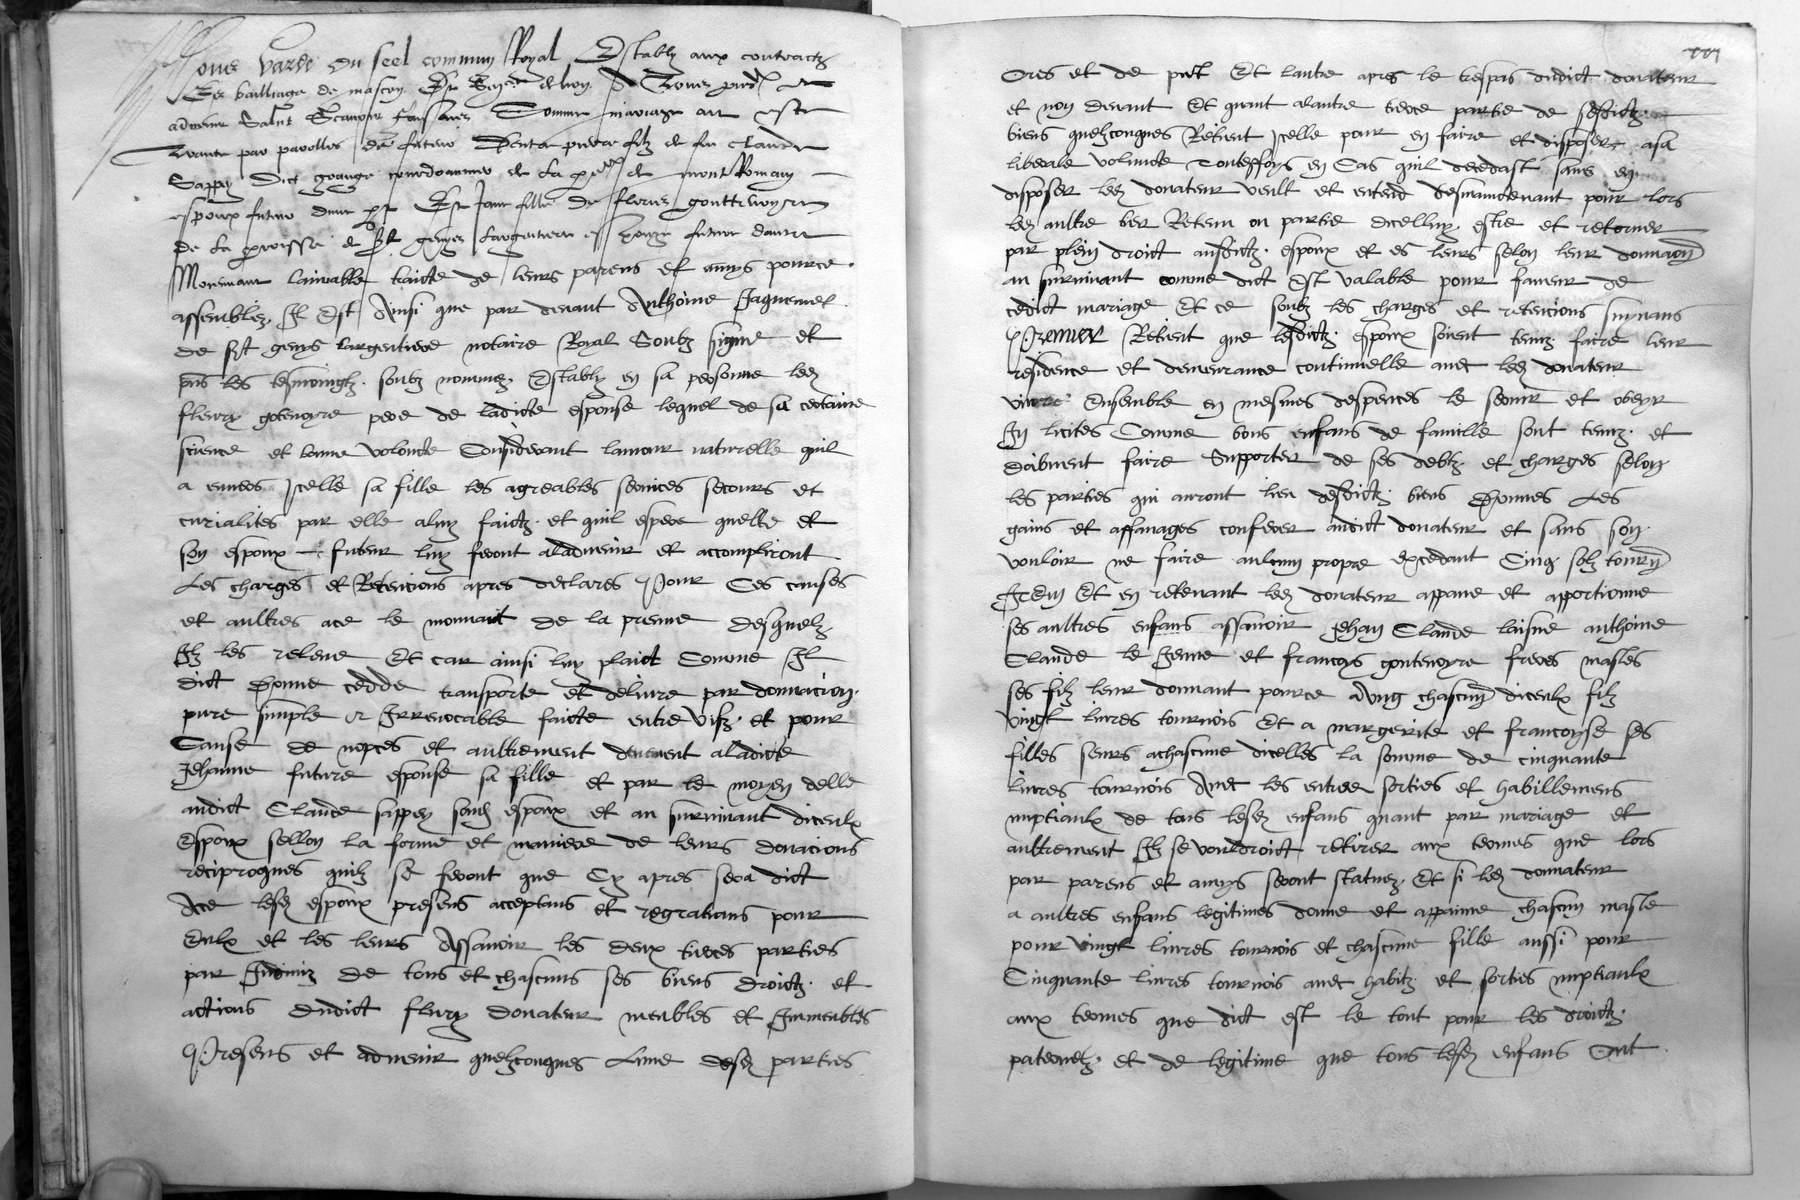 garde du seel commun Royal Estably aux contractz
Es bailliage de mascon
advenir Salut Scavoir faisons Comme mariage
par parolles de futeur filz de feu Claude
Sappey Dict de la de mont Romain
espoux futeur dune part Et Jane fille de fleury gouttenoyre
de la parroisse de St genys Largentiere espouze future dautre
Moyennant laimable traicte de leurs parens et amys pource
assemblez Il Est Ainsi que par devant Anthoine Jaquemet
de St genys largentiere notaire Royal Soubz signe et
pns les tesmoingtz soubz nommez Establiz en sa personne led
fleury gotenoyre pere de ladicte espouse lequel de sa certaine
science et bonne volonte Considerant lamour naturelle quil
a envers Icelle sa fille les agreables services secours et
curialites par elle aluy faictz et quil espere quelle et
son espoux futeur luy feront aladvenir et accompliront
Les charges et Retencions apres declares Pour Ces causes
et aultres ace le mouvant de la preuve desquelz
Il les releve Et car ainsi luy plaict Comme Il
dict Donne cedde transporte et delivre par donnacion
pure simple et Irrevocable faicte entre vifz et pour
Cause de nopces et aultrement deuement aladicte
Jehanne future espouse sa fille et par le moyen delle
audict Claude sappey sond espoux et au survivant diceulx
Espoux sellon la forme et maniere de leurs donacions
reciproques quilz se feront que Cy apres sera dict
Ace lesd espoux presens acceptans et regratians pour
Eulx et les leurs Assavoir les deux tierces parties
par Indiviz de tous et chascuns ses biens droictz et
actions dudict fleury donateur meubles et Immeubles
Presens et advenir quelzconques Lune desd parties
Ores et de pnt Et lautre apres le trespas dudict donateur
et non devant Et quant alautre tierce partie de sesdictz
biens quelzconques Retient Icelle pour en faire et disposer asa
liberale volunte Touteffoys en Cas quil decedast sans en
disposer led donateur veult et entend desmaintenant pour lors
led aultre tier Retenu ou partie dicelluy estre et retorner
par plein droict ausdictz espoux et es leurs selon leur donnaon
au survivant comme dict Est valable pour faveur de
cedict mariage Et ce soubz les charges et retencions suyvans
Premier Retient que lesdictz espoux soient tenuz faire leur
residence et demeurance continuelle avec led donateur
vivre Ensemble en mesmes despences le servir et obeyr
In licites Comme bons enfans de famille sont tenuz et
doibvent faire Supporter de ses debtz et charges selon
les parties qui auront lieu desdictz biens Donnes Les
gains et affanages conferer audict donateur et sans son
vouloir ne faire aulcun propre excedant Cinq solz tourn
Item Et en retenant led donateur appane et apportionne
ses aultres enfans assavoir Jehan Claude laisne anthoine
Claude le Jeune et francoys gontenoyre freres masles
ses filz leur donnant pource Aung chascun diceulx filz
vingt livres tournois Et a margerite et francoyse ses
filles seurs achascune dicelles la somme de cinquante
livres tournois Avec les entree sorties et habillemens
nuptiaulx de tous lesd enfans quant par mariage et
aultrement Ilz se vouldroict retirer aux termes que lors
par parens et amys seront statuez Et si led donnateur
a aultres enfans legitimes donne et appanne chascun masle
pour vingt livres tournois et chascune fille aussi pour
Cinquante livres tournois avec habitz et sorties nuptiaulx
aux termes que dict est le tout pour les droictz
paternelz et de legitime que tous lesd enfans Ont